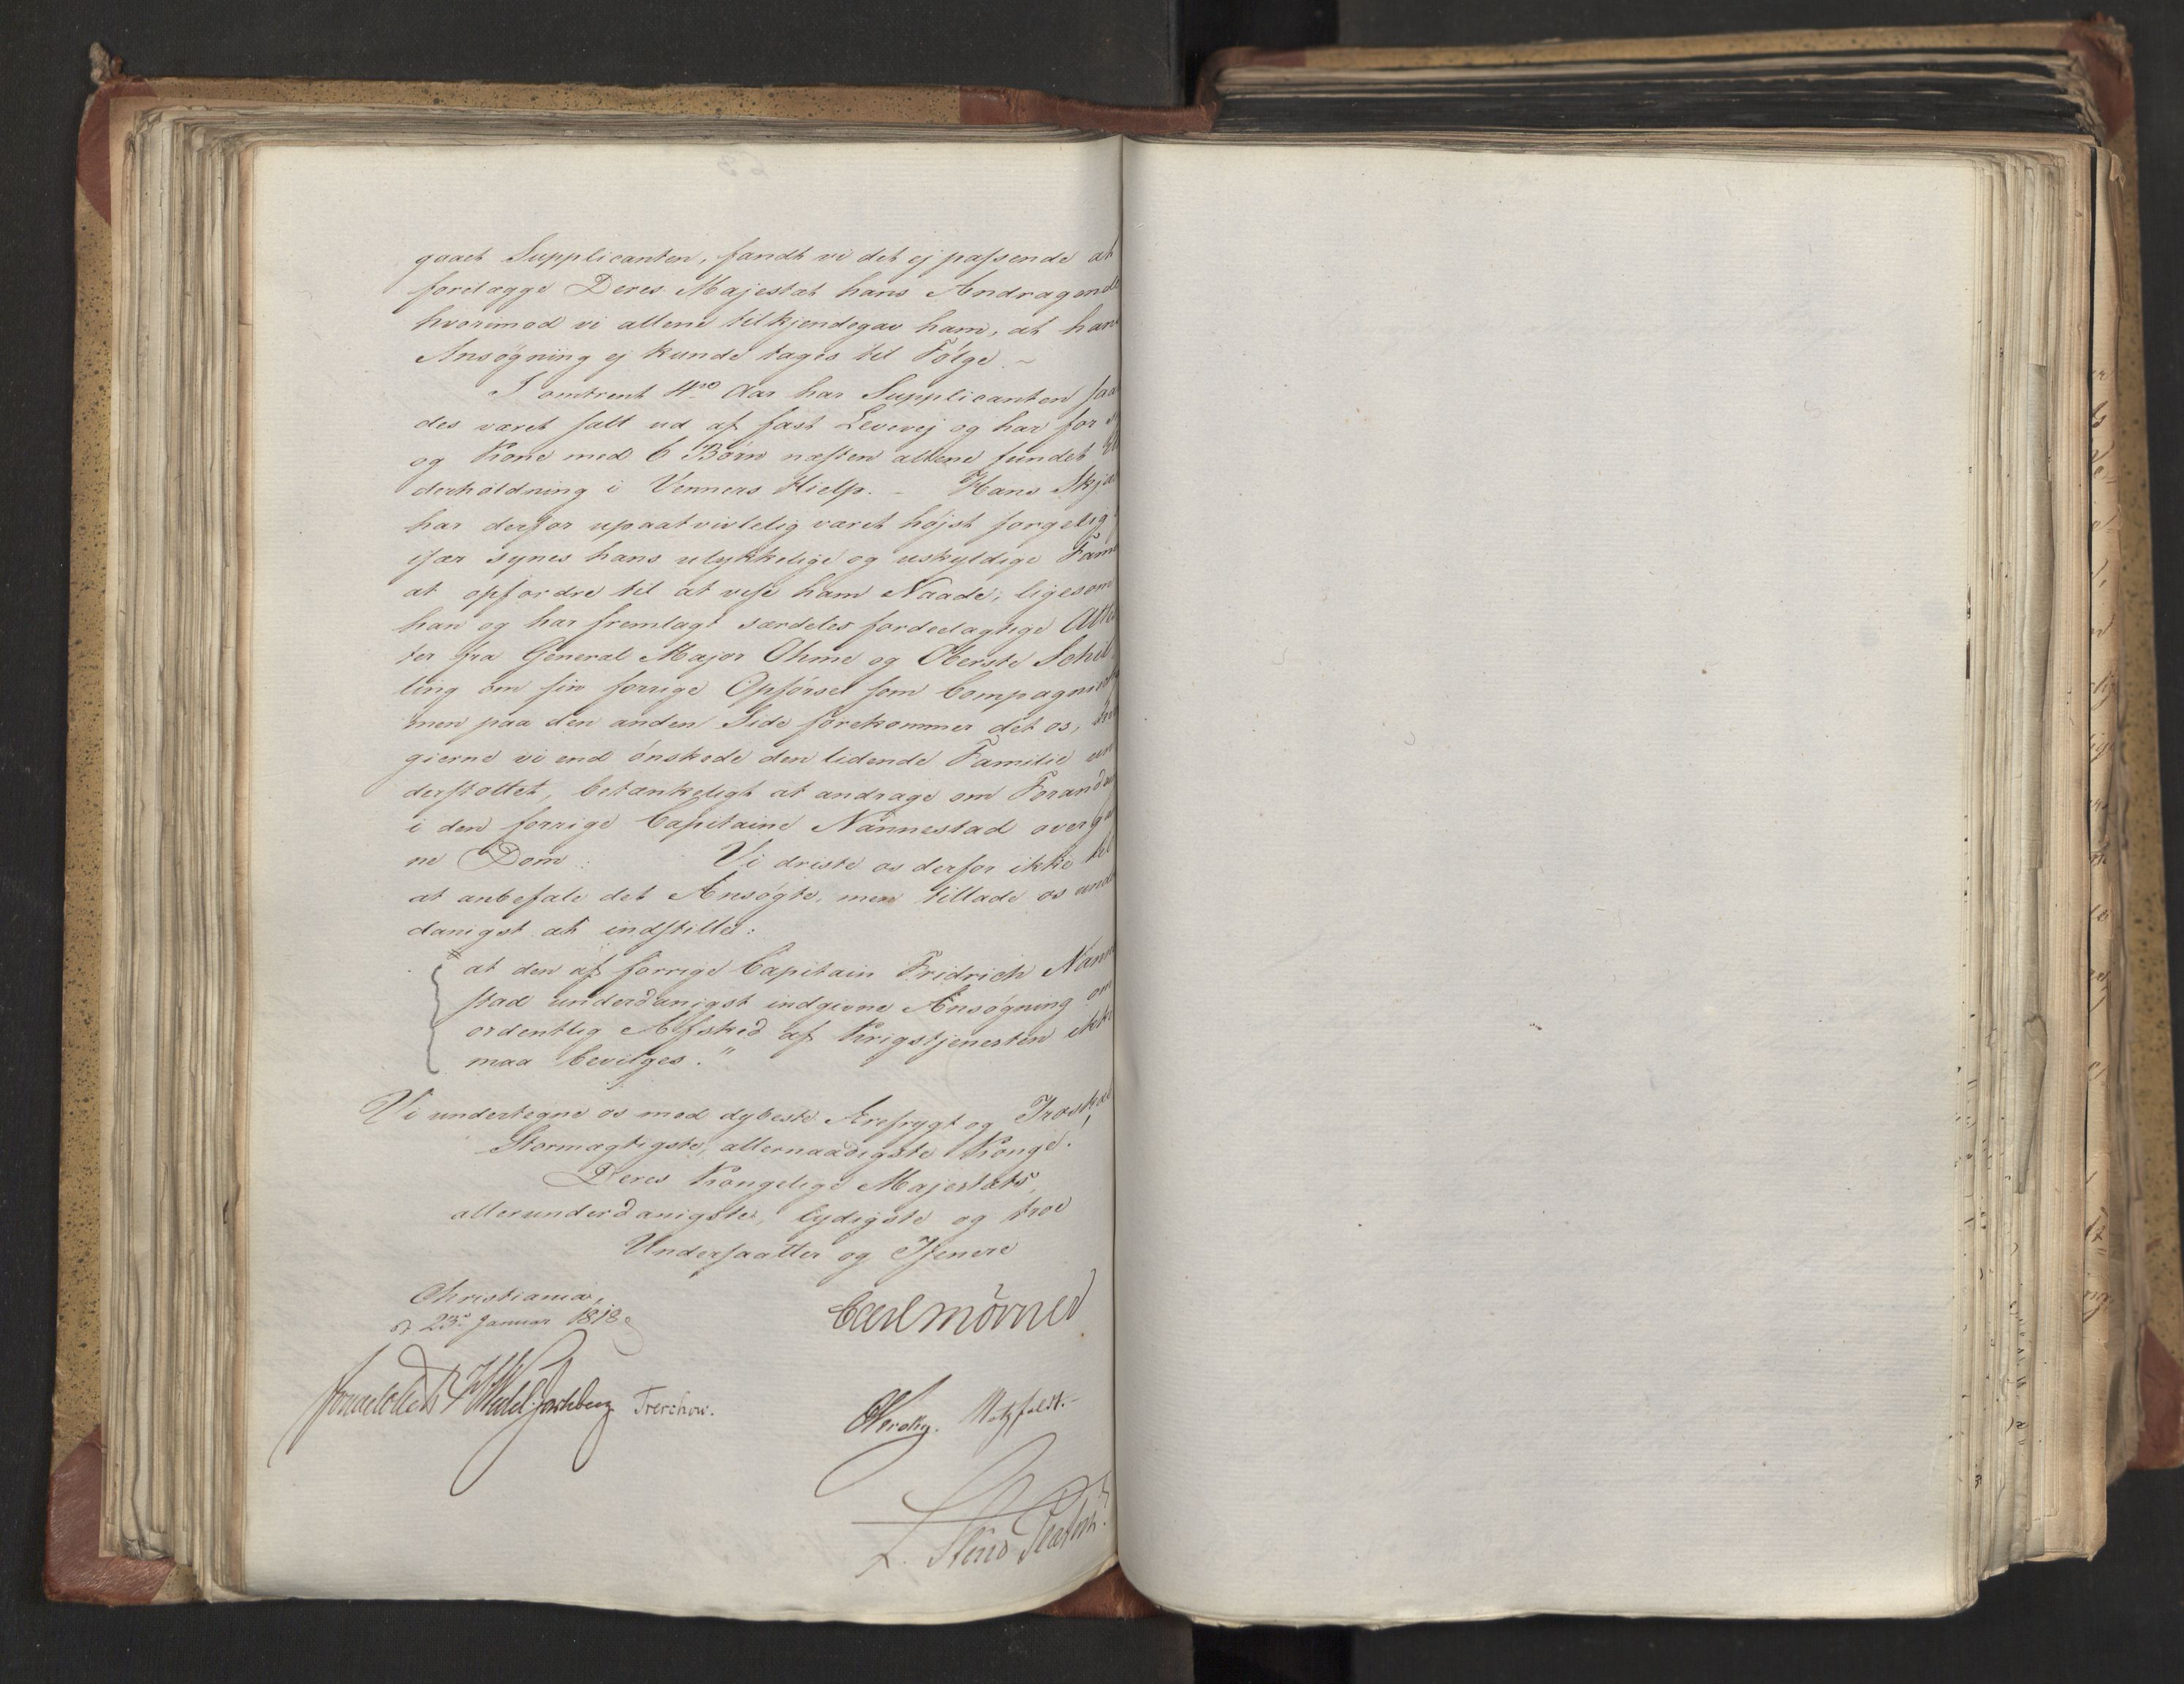 gaaet Supplicanten, fandt vi det ej passende at
forelægge Deres Majestæt hans Andragende
hvorimod vi allene tilkjendegav ham, at hans
Ansøgning ej kunde tages til Følge. -
I omtrent 4re Aar har Supplicanten saa
des været salt ud af fast Levevej og har for
og Kone med 6 Børn næsten allene fundet U
derholdning i Venners Hielp. - Hans Skjæ
har derfor upaatvivlelig været højst sørgelig
især synes hans ulykkelige og uskyldige Fami
at opfordre til at vise ham Naade; ligesom
han og har fremlagt særdeles fordeelagtige Atte
ter fra General Major Ohme og Oberste Schil
ling om sin forrige Opførsel som Compagnie
men paa den anden Side forekommer det os,
gierne vi end ønskede den lidende Familie un
derstøttet, betænkeligt at andrage om Forandr
i den forrige Capitaine Nannestad overg
ne Dom: Vi driste os derfor ikke til
at anbefale det Ansøgte, men tillade os unde
danigst at indstille:
" at den af forrige Capitain Fridrich Nanne
stad underdanigst indgivne Ansøgning om
ordentlig Afsked af Krigstjenesten ikke
maa bevilges."
Vi undertegne os med dybeste Ærefrygt og Troskab
Stormægtigste, allernaadigste Konge!
Deres Kongelige Majestæts
allerunderdanigste, lydigste og troe
Undersaatter og Tjenere
Christiania,
d 23de Januar 1818
Carl Mörner
Sommerhielm Wedel Jarlsberg Treschow.
Motzfeldt.-